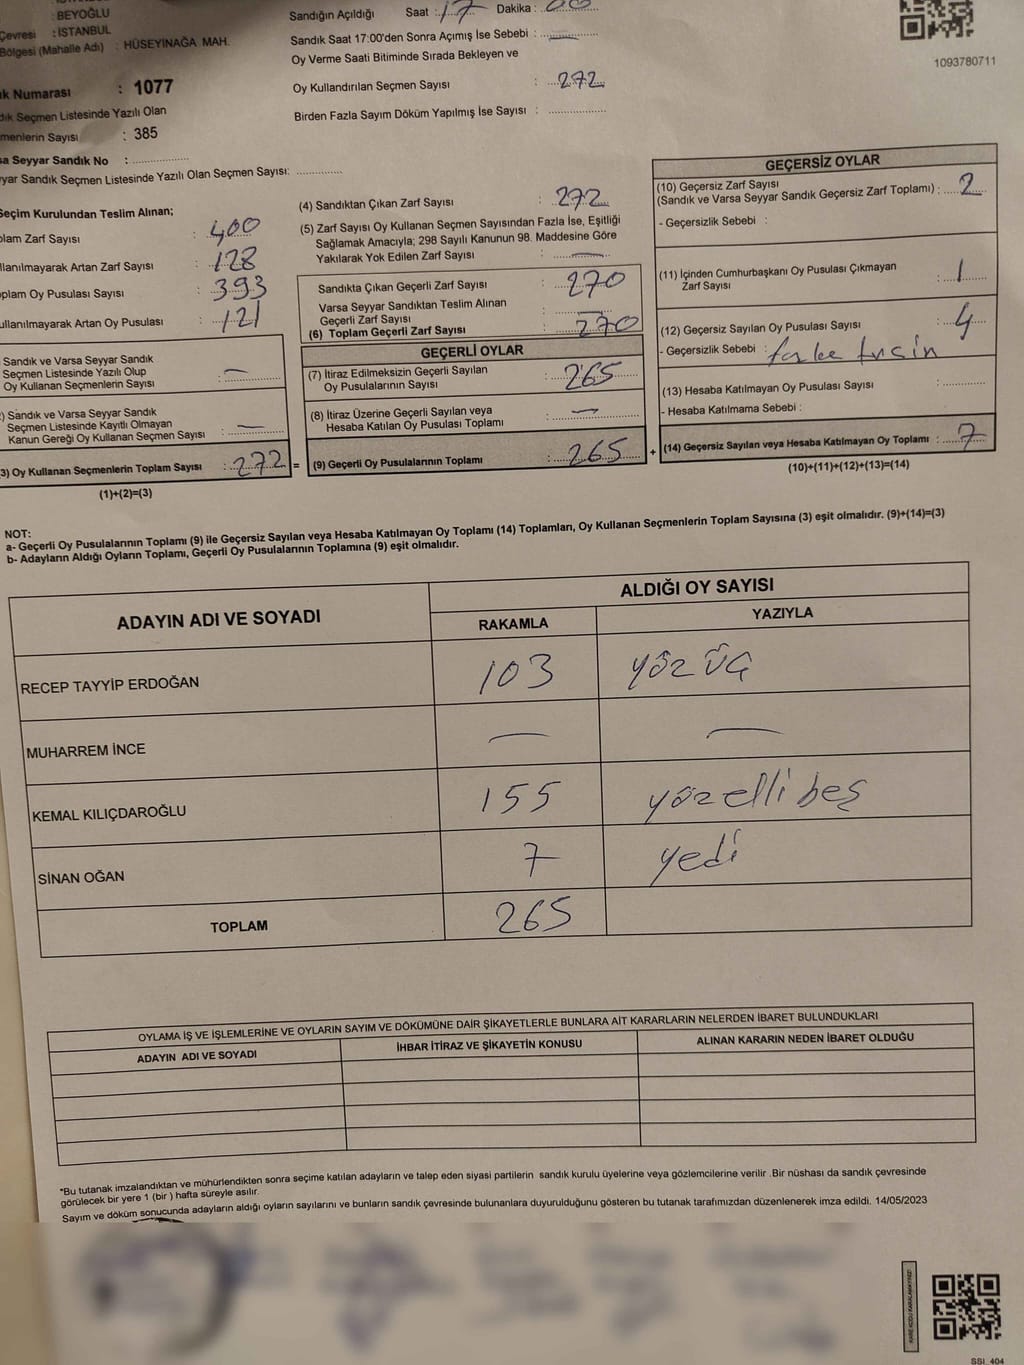 : BEYOĞLU
Çevresi : İSTANBUL
Bölgesi (Mahalle Adı) : HÜSEYİNAĞA MAH.
Numarası : 1077
Seçmen Listesinde Yazılı Olan
Sayısı : 385
Seyyar Sandık No : ..................
Sandık Seçmen Listesinde Yazılı Olan Seçmen Sayısı: ..............
Sandığın Açıldığı Saat : 17 Dakika :
Sandık Saat 17:00'den Sonra Açımış İse Sebebi :
Oy Verme Saati Bitiminde Sırada Bekleyen ve
Oy Kullandırılan Seçmen Sayısı : 272
Birden Fazla Sayım Döküm Yapılmış İse Sayısı : ..................
1093780711
Seçim Kurulundan Teslim Alınan;
Zarf Sayısı : 400
Artan Zarf Sayısı : 128
Oy Pusulası Sayısı : 393
Artan Oy Pusulası : 121
Sandık ve Varsa Seyyar Sandık
Seçmen Listesinde Yazılı Olup
Oy Kullanan Seçmenlerin Sayısı : —
) Sandık ve Varsa Seyyar Sandık
Seçmen Listesinde Kayıtlı Olmayan
Kanun Gereği Oy Kullanan Seçmen Sayısı : —
3) Oy Kullanan Seçmenlerin Toplam Sayısı : 272 =
(1)+(2)=(3)
(4) Sandıktan Çıkan Zarf Sayısı : 272
(5) Zarf Sayısı Oy Kullanan Seçmen Sayısından Fazla İse, Eşitliği
Sağlamak Amacıyla; 298 Sayılı Kanunun 98. Maddesine Göre
Yakılarak Yok Edilen Zarf Sayısı : —
Sandıkta Çıkan Geçerli Zarf Sayısı : 270
Varsa Seyyar Sandıktan Teslim Alınan
Geçerli Zarf Sayısı : —
(6) Toplam Geçerli Zarf Sayısı : 270
GEÇERLİ OYLAR
(7) İtiraz Edilmeksizin Geçerli Sayılan
Oy Pusulalarının Sayısı : 265
(8) İtiraz Üzerine Geçerli Sayılan veya
Hesaba Katılan Oy Pusulası Toplamı : —
(9) Geçerli Oy Pusulalarının Toplamı : 265 +
GEÇERSİZ OYLAR
(10) Geçersiz Zarf Sayısı
(Sandık ve Varsa Seyyar Sandık Geçersiz Zarf Toplamı) : 2
- Geçersizlik Sebebi :
(11) İçinden Cumhurbaşkanı Oy Pusulası Çıkmayan
Zarf Sayısı : 1
(12) Geçersiz Sayılan Oy Pusulası Sayısı : 4
- Geçersizlik Sebebi :
(13) Hesaba Katılmayan Oy Pusulası Sayısı : ..............
- Hesaba Katılmama Sebebi :
(14) Geçersiz Sayılan veya Hesaba Katılmayan Oy Toplamı : 7
(10)+(11)+(12)+(13)=(14)
NOT:
a- Geçerli Oy Pusulalarının Toplamı (9) ile Geçersiz Sayılan veya Hesaba Katılmayan Oy Toplamı (14) Toplamları, Oy Kullanan Seçmenlerin Toplam Sayısına (3) eşit olmalıdır. (9)+(14)=(3)
b- Adayların Aldığı Oyların Toplamı, Geçerli Oy Pusulalarının Toplamına (9) eşit olmalıdır.
ADAYIN ADI VE SOYADI
ALDIĞI OY SAYISI
RAKAMLA YAZIYLA
RECEP TAYYİP ERDOĞAN 103 yüz üç
MUHARREM İNCE — —
KEMAL KILIÇDAROĞLU 155 yüzelli beş
SİNAN OĞAN 7 yedi
TOPLAM 265
OYLAMA İŞ VE İŞLEMLERİNE VE OYLARIN SAYIM VE DÖKÜMÜNE DAİR ŞİKAYETLERLE BUNLARA AİT KARARLARIN NELERDEN İBARET BULUNDUKLARI
ADAYIN ADI VE SOYADI İHBAR İTİRAZ VE ŞİKAYETİN KONUSU ALINAN KARARIN NEDEN İBARET OLDUĞU
*Bu tutanak imzalandıktan ve mühürlendikten sonra seçime katılan adayların ve talep eden siyasi partilerin sandık kurulu üyelerine veya gözlemcilerine verilir .Bir nüshası da sandık çevresinde
görülecek bir yere 1 (bir ) hafta süreyle asılır.
Sayım ve döküm sonucunda adayların aldığı oyların sayılarını ve bunların sandık çevresinde bulunanlara duyurulduğunu gösteren bu tutanak tarafımızdan düzenlenerek imza edildi. 14/05/2023
KARE KODU KARALAMAYINIZ!
SSI 404